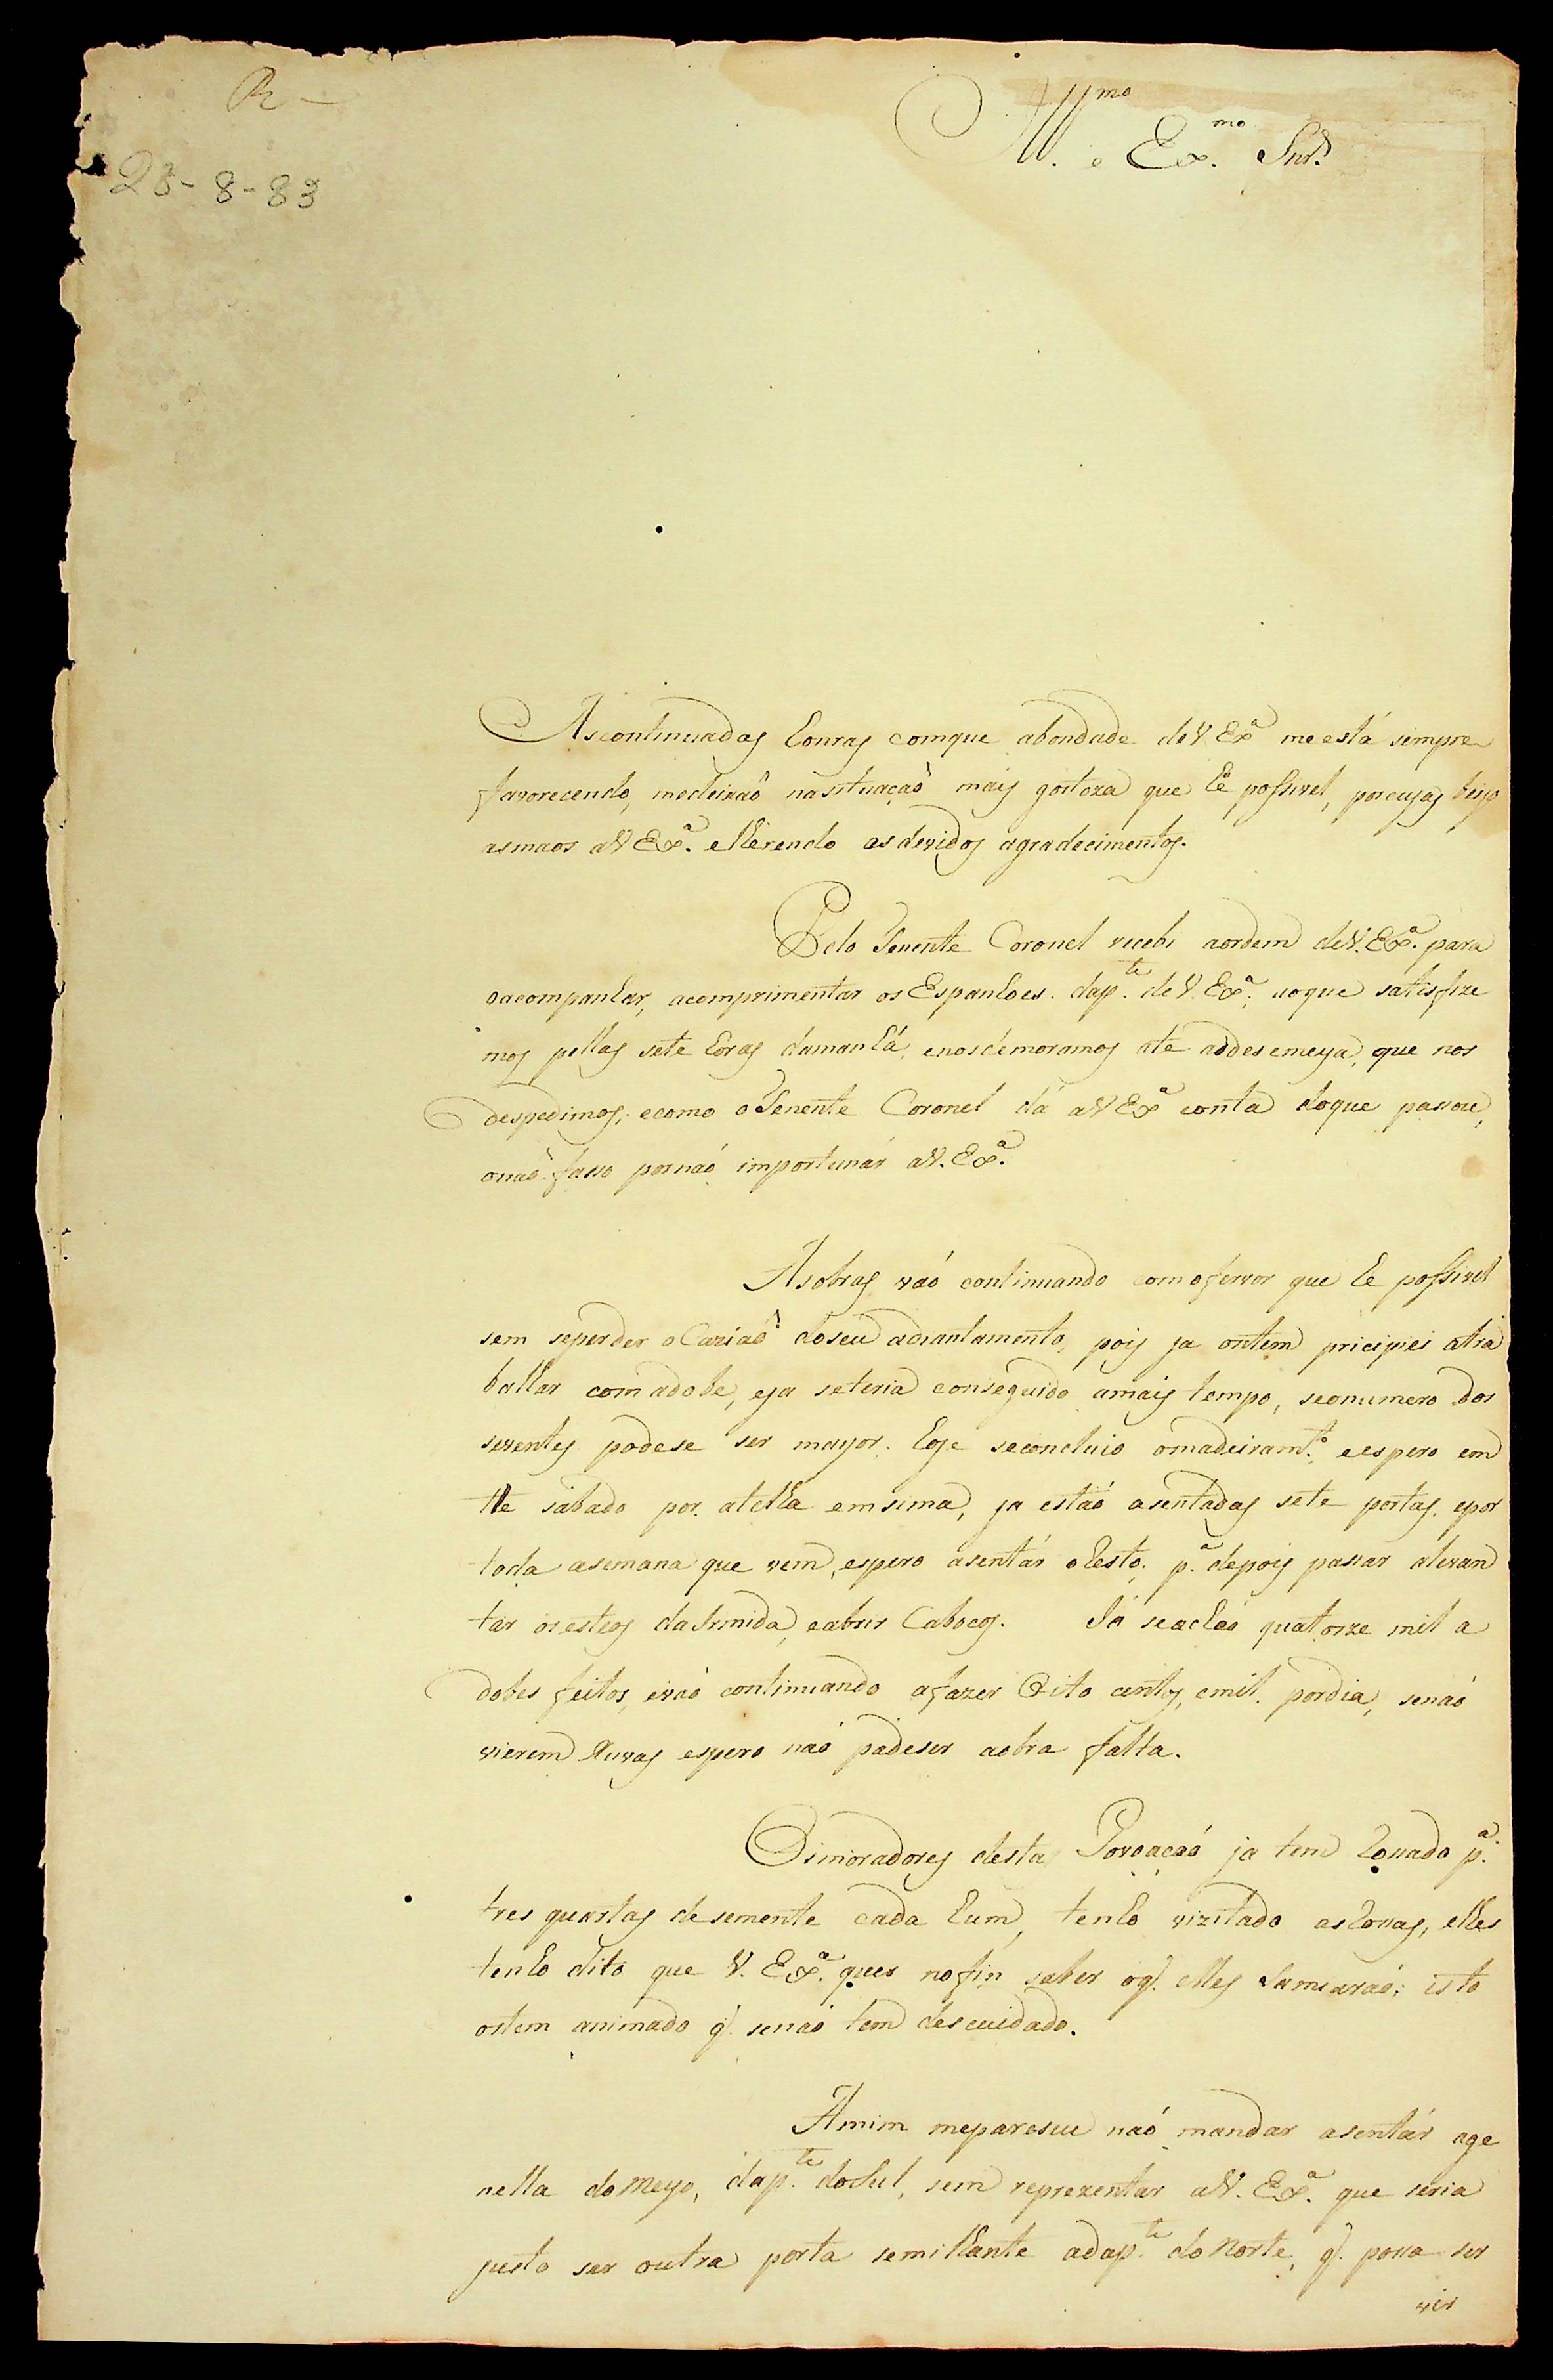 R-
28-8-83
Ill.mo e Ex.mo Snr.
As continuadas honras comque abondade deV.Exª me está sempre
favorecendo, medeixaõ nasituaçaõ mais gostoza que hé possivel, porcujas beijo
asmaos aV Exª. elherendo os devidos agradecimentos.
Pelo Tenente Coronel recebi aordem deV.Exª. para
oacompanhar, acomprimentar os Espanhoes. dap.te de V.Exª; aoque satisfize
mos pellas sete horas damanhá, enosdemoramos ate asdesemeya, que nos
despedimos; ecomo oTenente Coronel dá aV Exª conta doque passou,
onaõ fasso pornaõ importunár aV.Exª.
Asobras vaõ continuando comofervor que he possivel
sem seperder ocaziaõ doseu adiantamento, pois ja ontem pricipiei atra
balhar com adobe, eja seteria conseguido amais tempo, seonumero dos
serventes podese ser mayor. hoje seconcluio omadeiram.to eespero em
the sábado por atelha emsima, ja estaõ asentadas sete portas, epor
toda asemana que vem, espero asentár oResto, pª depois passar alevan
tár osesteos da Irmida, eabrir Cabocos. Já seachaõ quatorze mil a
dobes feitos, evaõ continuando afazer Oito centos, emil. pordia, senaõ
vierem Xuvas espero naõ padeser aobra falta.
Osmoradores desta Povoaçaõ ja tem Rossado pª
tres quartas desemente cada hum, tenho vizitado asRossas, elhes
tenho dito que V.Exª. quer nofin saber oq. elles Samearaõ; isto
ostem animado q. senaõ tem descuidado.
Amim mepareseu naõ mandar asentár age
nella domeyo, dap.te doSul, sem reprezentar aV.Exª. que seria
justo ser outra porta semilhante adap.te do Norte, q. possa ser
vir